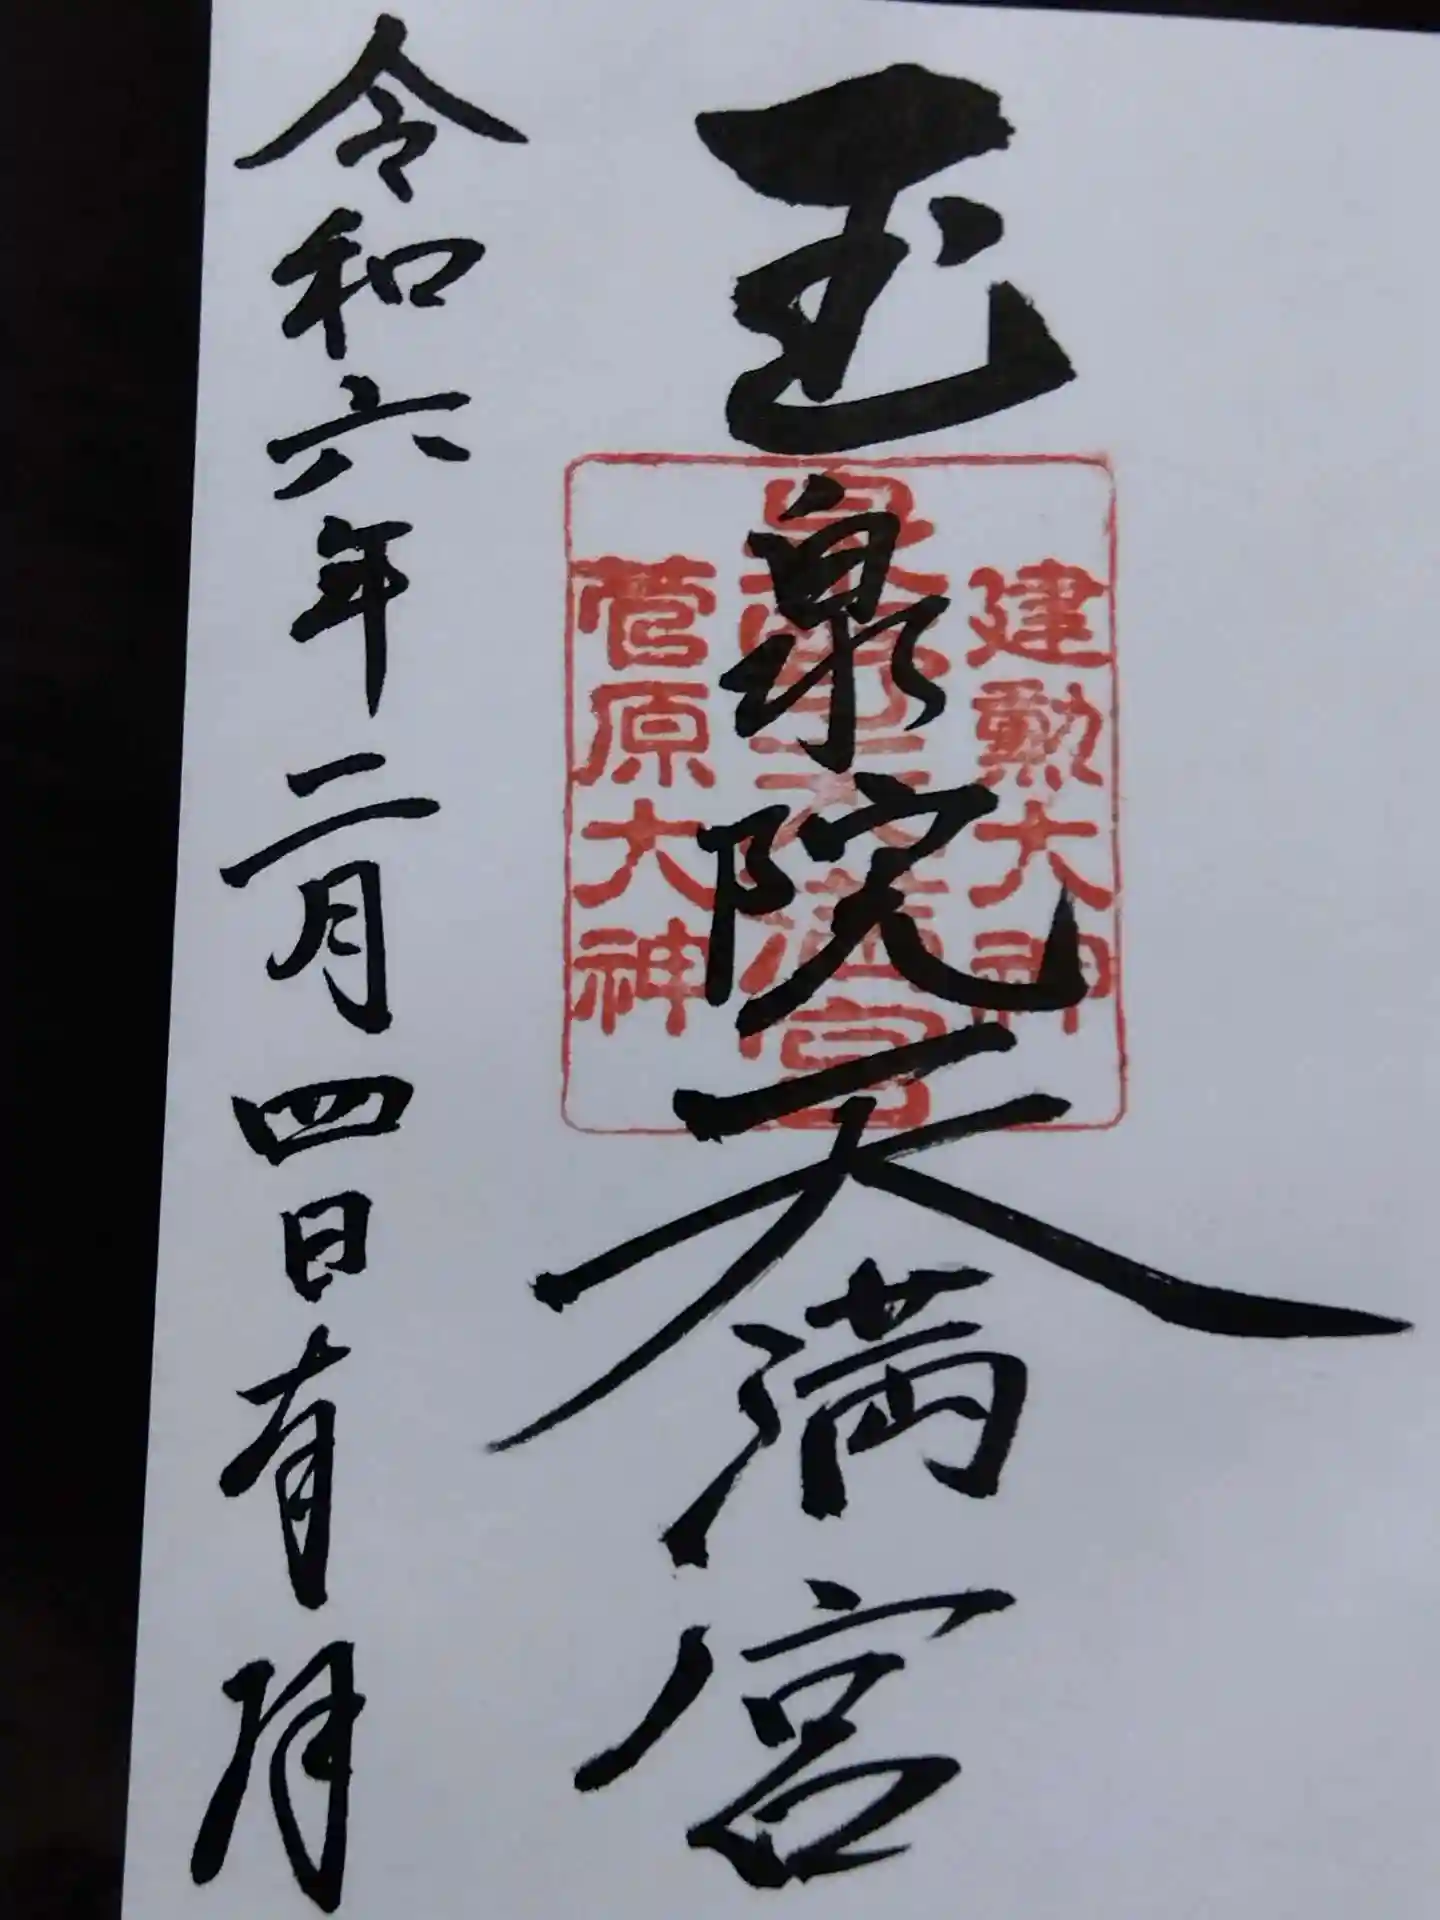 玉泉院天満宮
建勲大神
天満宮
菅原大神
令和六年二月四日有